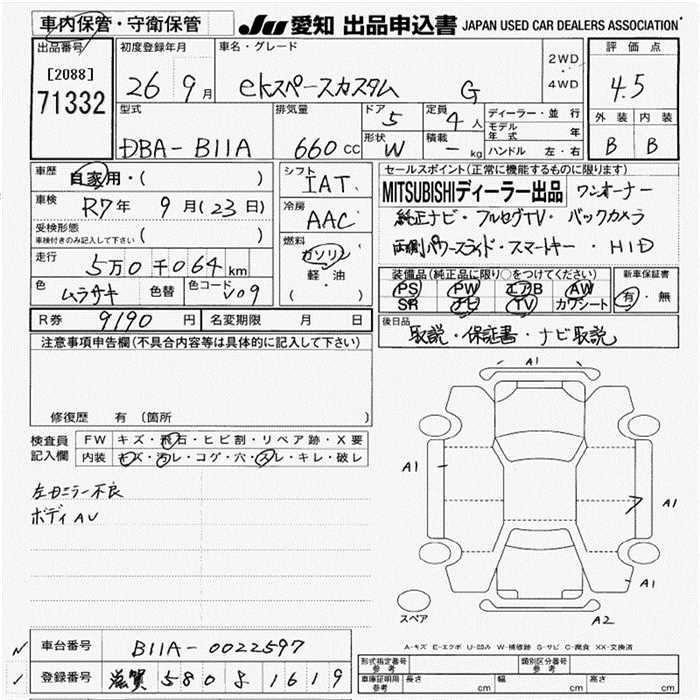 車内保管・守衛保管 JU 愛知 出品申込書 JAPAN USED CAR DEALERS ASSOCIATION
出品番号 初度登録年月 車名・グレード 評価点
[2088] 26 9月 ekスペースカスタム G 2WD・4WD 4.5
71332
型式 排気量 ドア 5 定員 4人 ディーラー・並行 外装 内装
DBA-B11A 660cc 形状 W 積載 -kg モデル年式 年 B B
ハンドル 左・右
車歴 自家用・( ) シフト IAT セールスポイント(正常に機能するものに限ります)
車検 R7年 9月(23日) 冷房 AAC MITSUBISHIディーラー出品 ワンオーナー
受検形態 車検付きのみ記入して下さい ( ) 純正ナビ・フルセグTV・バックカメラ
走行 5万0千064km 燃料 ガソリン 両側パワースライド・スマートキー・HID
軽・油
( )
色 ムラサキ 色替 色コード V09
装備品(純正品に限り○をつけてください) 新車保証書
PS PW エアB AW 有・無
SR ナビ TV カワシート
R券 9190円 名変期限 月 日
後日品 取説・保証書・ナビ取説
注意事項申告欄(不具合内容等は具体的に記入して下さい)
修復歴 有 (箇所 )
検査員記入欄 FW キズ・飛石・ヒビ割・リペア跡・X要
内装 キズ・汚レ・コゲ・穴・スレ・キレ・破レ
左右ミラー不良
ボディAU
A1
A1
A1
A1
A2
スペア
A-キズ E-エクボ U-凹み W-補修跡 S-サビ C-腐食 XX-交換済
車台番号 B11A-0022597
登録番号 滋賀 580 る 1619
形式指定番号 参考 類別区分番号 参考
車庫証明用 参考 長さ cm 幅 cm 高さ cm